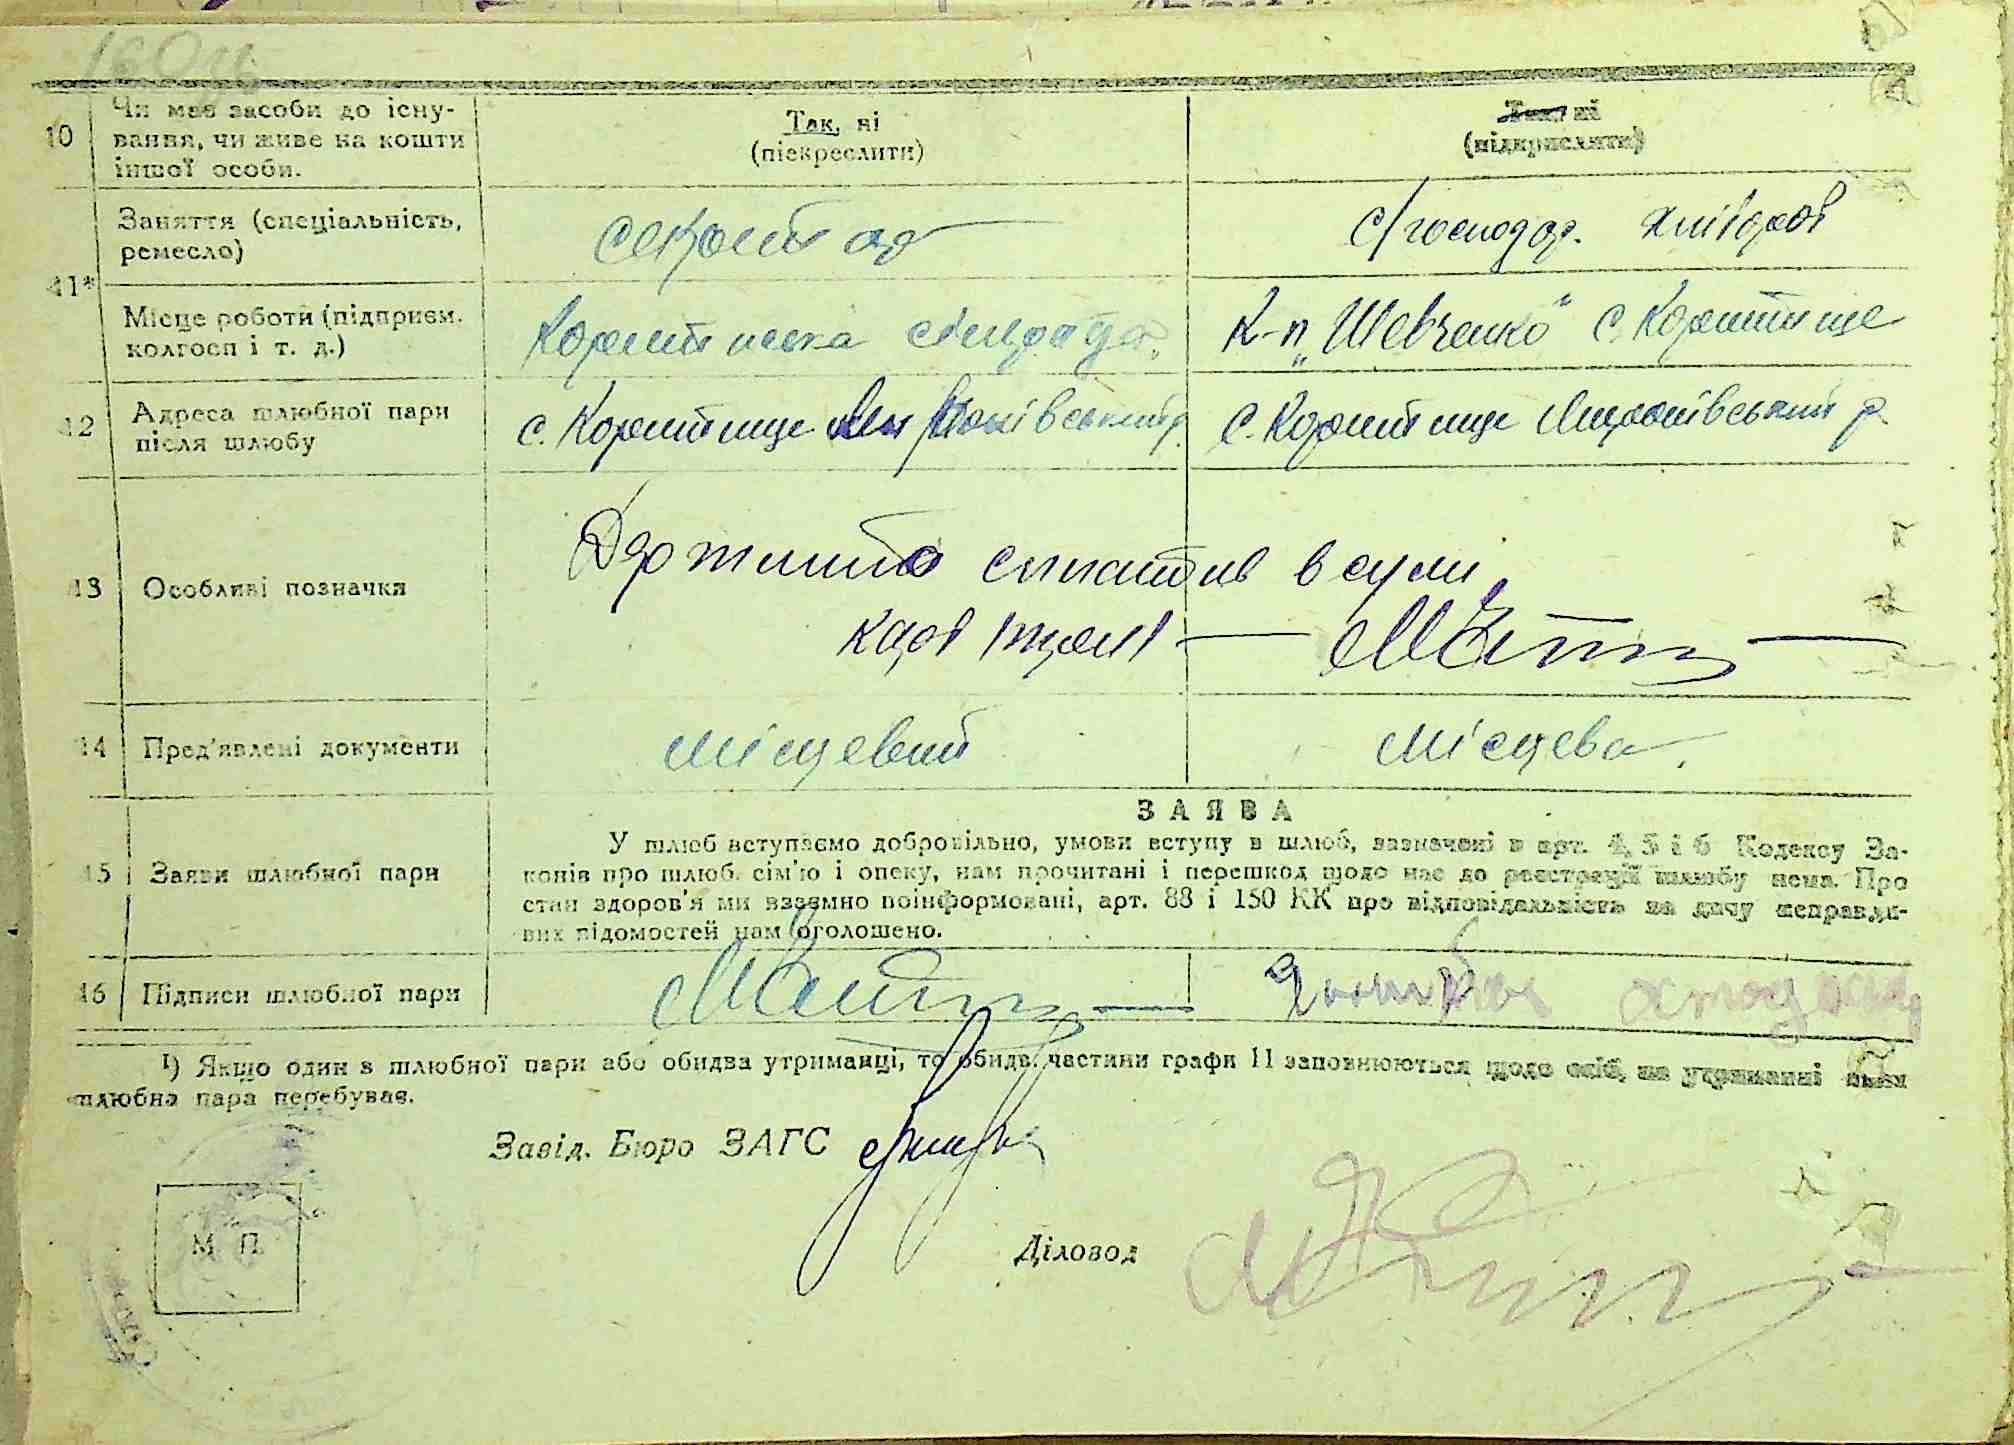 10 Чи має засоби до існу-
вання, чи живе на кошти
іншої особи.
Так, ні
(піскреслити)
Так, ні
(підкреслити)
11* Заняття (спеціальність,
ремесло)
секретар
с/господар.
Місце роботи (підприєм.
колгосп і т. д.)
сільрада
К-п „Шевченко“ с. Коритище
12 Адреса шлюбної пари
після шлюбу
с. Коритище
с. Коритище
13 Особливі позначки
Держмито сплатив в сумі
14 Пред'явлені документи
місцевий
місцева
З А Я В А
15 Заяви шлюбної пари
У шлюб вступаємо добровільно, умови вступу в шлюб, зазначені в арт. 4, 5 і 6 Кодексу За-
конів про шлюб, сім'ю і опеку, нам прочитані і перешкод щодо нас до реєстрації шлюбу нема. Про
стан здоров'я ми взаємно поінформовані, арт. 88 і 150 КК про відповідальність за дачу неправди-
вих відомостей нам оголошено.
16 Підписи шлюбної пари
¹) Якщо один з шлюбної пари або обидва утриманці, то обидві частини графи 11 заповнюються щодо осіб, на утриманні яких
шлюбна пара перебуває.
Завід. Бюро ЗАГС
М П
Діловод